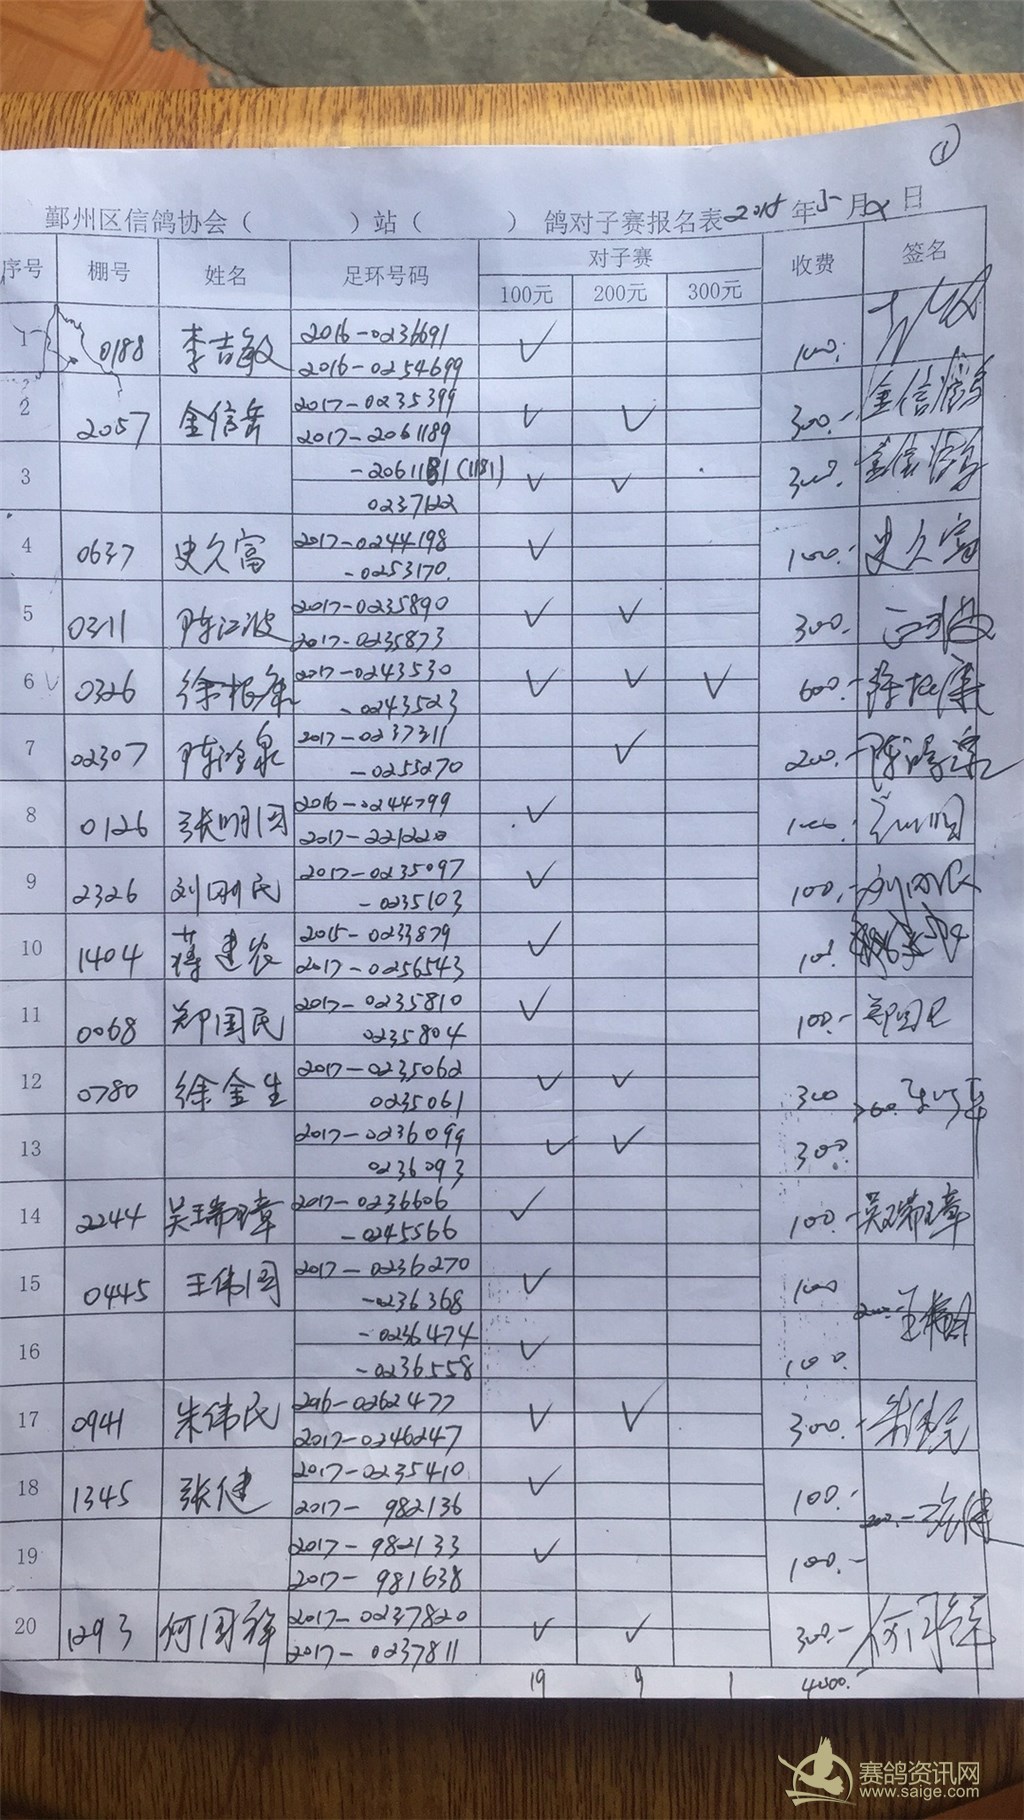 ①
鄞州区信鸽协会（ ）站（ ）鸽对子赛报名表2018年5月 日
序号 棚号 姓名 足环号码 对子赛 收费 签名
100元 200元 300元
1 0188 李吉敏 2016-0236691 ✓ 100.
2016-0254699
2 2057 金信岳 2017-0235399 ✓ ✓ 300.- 金信岳
2017-2061189
3 -2061181(1181) ✓ ✓ 300. 金信岳
0237122
4 0637 史久富 2017-0244198 ✓ 100.- 史久富
-0253170.
5 0311 陈江波 2017-0235890 ✓ ✓ 300.
2017-0235873
6 0326 徐根康 2017-0243530 ✓ ✓ ✓ 600.-
-0243523
7 02307 陈鸿泉 2017-0237311 ✓ 200.- 陈鸿泉
-0255270
8 0126 张明国 2016-0244799 ✓ 100.
2017-221220
9 2326 刘刚民 2017-0235097 ✓ 100.- 刘刚民
-0235103
10 1404 蒋建农 2015-0233879 ✓ 100.
2017-0256543
11 0068 郑国民 2017-0235810 ✓ 100.- 郑国民
0235804
12 0780 徐金生 2017-0235062 ✓ ✓ 300
0235061
13 2017-0236099 ✓ ✓ 300.
0236093
14 2244 吴瑞璋 2017-0236606 ✓ 100.- 吴瑞璋
-0245566
15 0445 王伟国 2017-0236270 ✓ 100 200.- 王伟国
-0236368
16 -0236474 ✓ 100.
-0236558
17 0941 朱伟民 2016-0262477 ✓ ✓ 300.- 朱伟民
2017-0246247
18 1345 张健 2017-0235410 ✓ 100.- 200.- 张健
2017- 982136
19 2017-982133 ✓ 100.-
2017- 981638
20 1293 何国祥 2017-0237820 ✓ ✓ 300.- 何国祥
2017-0237811
19 9 1 4000.-
赛鸽资讯网
www.saige.com